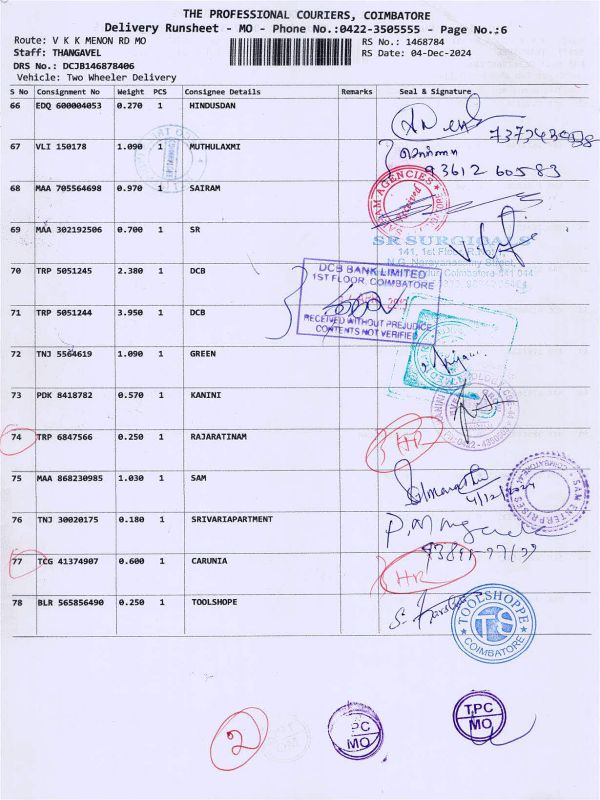 THE PROFESSIONAL COURIERS, COIMBATORE
Delivery Runsheet - MO - Phone No.:0422-3505555 - Page No.:6
Route: V K K MENON RD MO
RS No.: 1468784
Staff: THANGAVEL
RS Date: 04-Dec-2024
DRS No.: DCJB146878406
Vehicle: Two Wheeler Delivery
S No Consignment No Weight PCS Consignee Details Remarks Seal & Signature
66 EDQ 600004053 0.270 1 HINDUSDAN
67 VLI 150178 1.090 1 MUTHULAXMI
93612 60583
68 MAA 705564698 0.970 1 SAIRAM
SAIRAM AGENCIES
69 MAA 302192506 0.700 1 SR
SR SURGICALS
141, 1st Floor,
Coimbatore-641 044
70 TRP 5051245 2.380 1 DCB
DCB BANK LIMITED
1ST FLOOR, COIMBATORE
RECEIVED WITHOUT PREJUDICE
CONTENTS NOT VERIFIED
71 TRP 5051244 3.950 1 DCB
72 TNJ 5564619 1.090 1 GREEN
73 PDK 8418782 0.570 1 KANINI
74 TRP 6847566 0.250 1 RAJARATINAM
HR
75 MAA 868230985 1.030 1 SAM
4/12/2024
SAM ENTERPRISES
COIMBATORE
76 TNJ 30020175 0.180 1 SRIVARIAPARTMENT
77 TCG 41374907 0.600 1 CARUNIA
HR
78 BLR 565856490 0.250 1 TOOLSHOPE
TOOLSHOPPE
TS
COIMBATORE
2
TPC
MO
TPC
MO